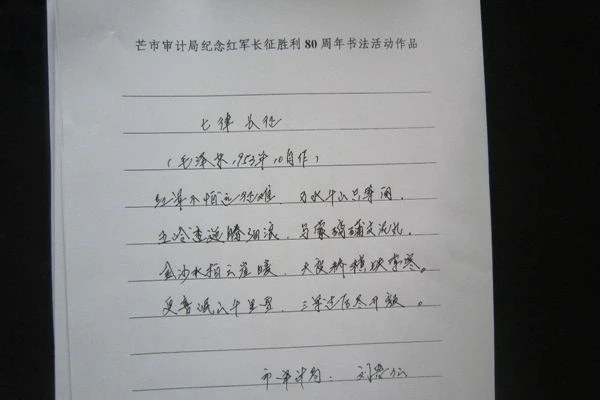 芒市审计局纪念红军长征胜利80周年书法活动作品
七律 长征
（毛泽东1953年10月作）
红军不怕远征难，万水千山只等闲，
五岭逶迤腾细浪，乌蒙磅礴走泥丸。
金沙水拍云崖暖，大渡桥横铁索寒。
更喜岷山千里雪，三军过后尽开颜。
市审计局：刘